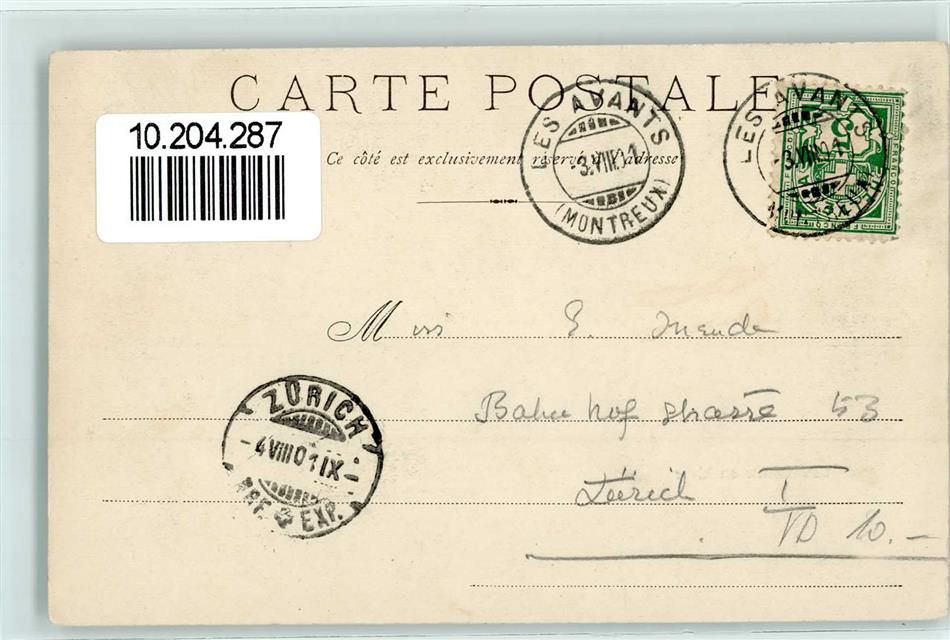 CARTE POSTALE
10.204.287
Ce côté est exclusivement réservé à l'adresse
LES AVANTS
-3.VIII.01
(MONTREUX)
LES AVANTS
-3.VIII.01
Miss E. Mende
Bahnhofstrasse 53
Zürich I
VD 10.-
ZÜRICH
-4.VIII.01.IX-
BRF. EXP.